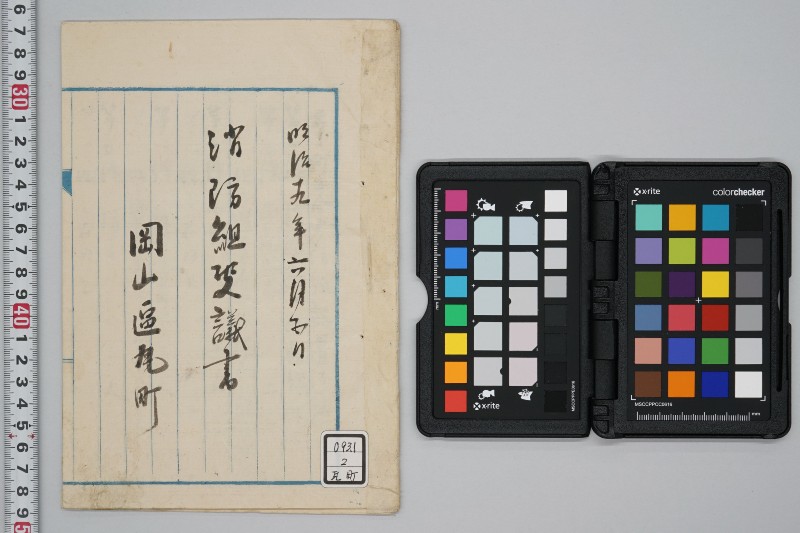 明治十九年六月五日
消防組叟議書
岡山區瓦町
0931
2
瓦町
x-rite
x-rite
colorchecker
MSCCPPCC0616
mm
6
7
8
9
30
1
2
3
4
5
6
7
8
9
40
1
2
3
4
5
6
7
8
9
5